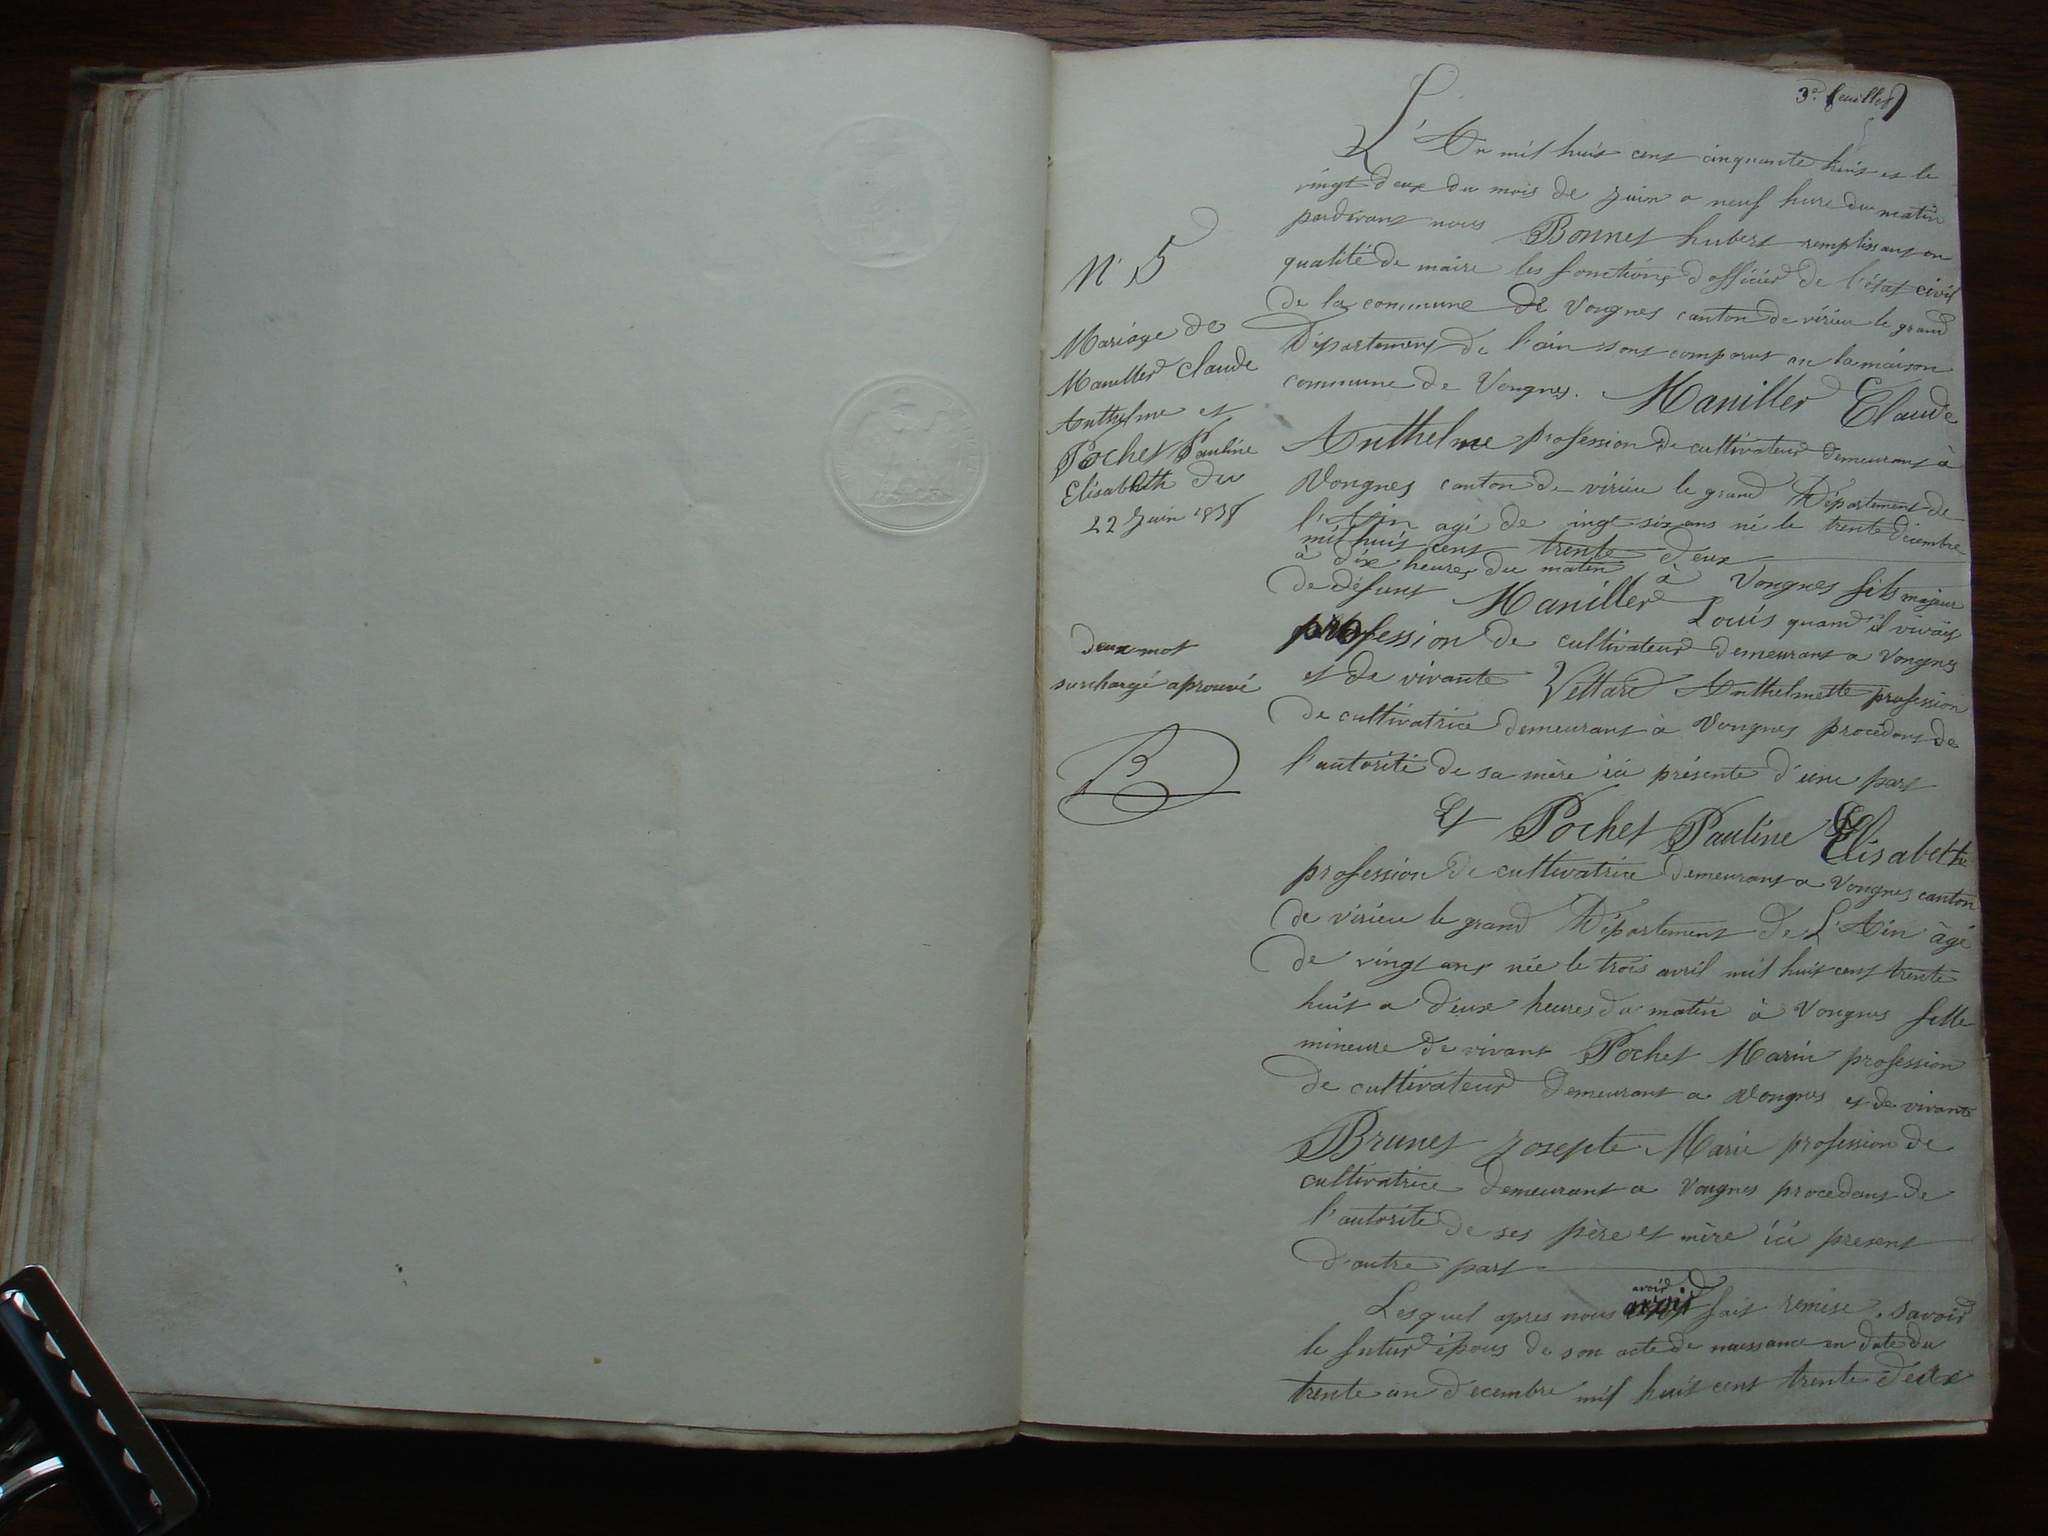 3e feuillet
N° 5
Mariage de
Maniller Claude
Anthelme et
Pochet Pauline
Elisabeth du
22 Juin 1858
deux mot
surchargé aprouvé
B
L'An mil huit cent cinquante huit et le
vingt deux du mois de Juin a neuf hure du matin
pardevant nous Bonnet hubert remplissant en
qualité de maire les fonctions d'officier de l'état civil
de la commune de Vongnes canton de virieu le grand
Département de l'ain sont comparut en la maison
commune de Vongnes. Maniller Claude
Anthelme profession de cultivateur demeurant à
Vongnes canton de virieu le grand Département de
l'Ain agé de ingt six ans né le trente décembre
mil huit cent trente deux
à dix heures du matin à Vongnes fils majeur
de défunt Maniller Louis quand il vivait
profession de cultivateur demeurant a Vongnes
et de vivante Vettard Anthelmette profession
de cultivatrice demeurant à Vongnes procédant de
l'autorité de sa mère ici présente d'une part
Et Pochet Pauline Elisabette
profession de cultivatrice demeurant a Vongnes canton
de virieu le grand Département de L'Ain âgé
de vingt ans née le trois avril mil huit cent trente
huit a deux heures du matin à Vongnes fille
mineure de vivant Pochet Marin profession
de cultivateur demeurant a Vongnes et de vivante
Brunet Josepte Marie profession de
cultivatrice demeurant a Vongnes procedant de
l'autorité de ses père et mère ici present
d'autre part
avoir
Lesquel apres nous avoir fait remise, savoir
le futur épous de son acte de naissance en date du
trente un decembre mil huit cent trente deux